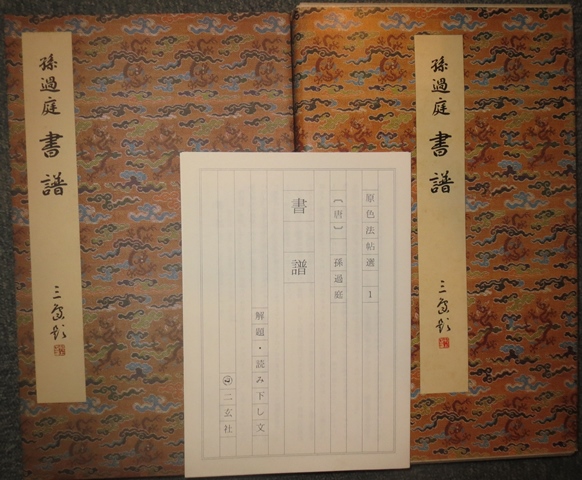 孫過庭 書譜
三
原色法帖選 1
〔唐〕 孫過庭
書譜
解題・読み下し文
二玄社
孫過庭 書譜
三